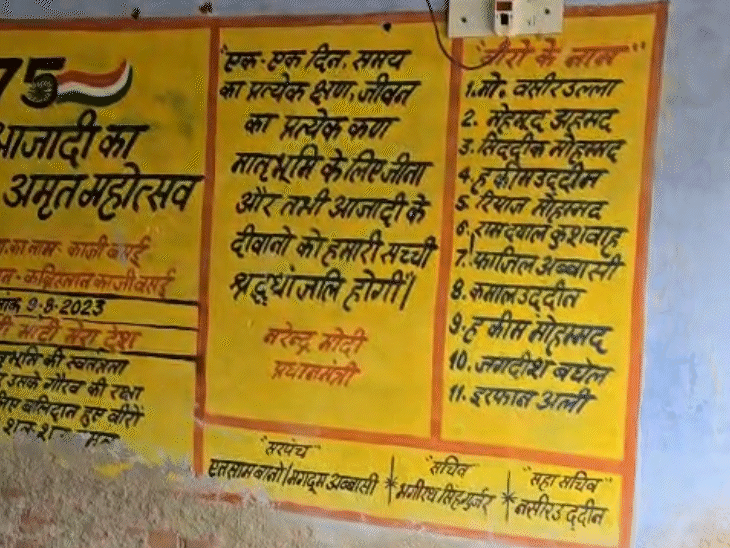 75
आजादी का
अमृत महोत्सव
का नाम- काजी बसई
कब्रिस्तान काजी बसई
9-8-2023
माटी मेरा देश
की स्वतंत्रता
उसके गौरव की रक्षा
बलिदान हुए वीरों
"एक-एक दिन, समय
का प्रत्येक क्षण, जीवन
का प्रत्येक कण
मातृभूमि के लिए जीना
और तभी आजादी के
दीवानो को हमारी सच्ची
श्रद्धांजलि होगी"।
नरेन्द्र मोदी
प्रधानमंत्री
"वीरों के नाम"
1. मो. वसीरउल्ला
2. मोहम्मद अहमद
3. सिद्दीक मोहम्मद
4. हकीमउद्दीन
5. रियाज मोहम्मद
6. रामदयाल कुशवाह
7. फाजिल अब्बासी
8. कमालउद्दीन
9. हकीम मोहम्मद
10. जगदीश बघेल
11. इरफान अली
"सरपंच"
एतसाम बानो/मगदूम अब्बासी
"सचिव"
भगीरथ सिंह गुर्जर
"सहा सचिव"
नसीरउद्दीन